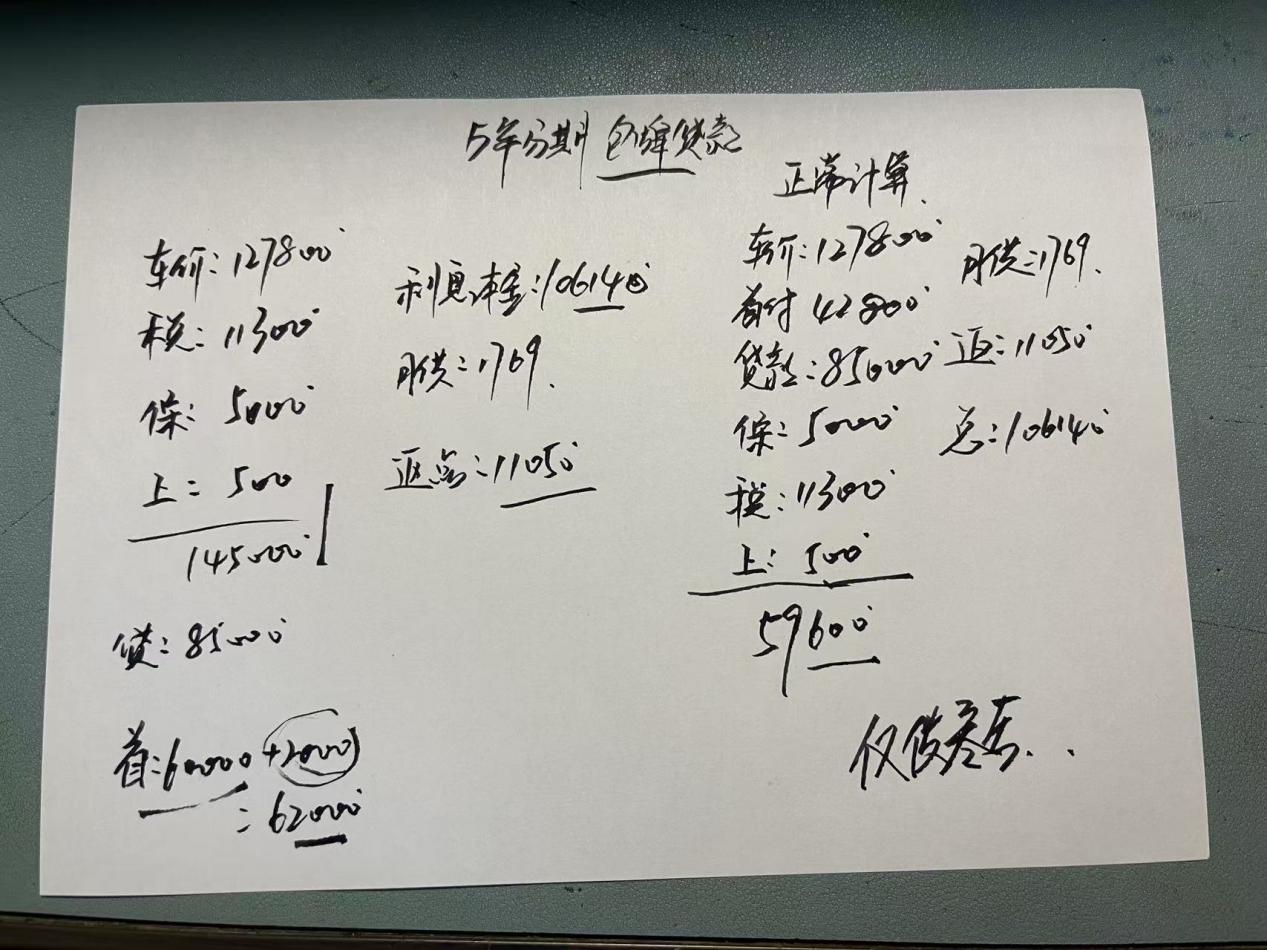 5年分期 包牌贷款
车价:127800
税:11300
保:5000
上:500
145000
贷:85000
首:60000+2000
=62000
利息本金:106140
月供:1769.
返点:11050
正常计算.
车价:127800
首付 42800
贷款:85000
保:5000
税:11300
上:500
59600
月供:1769.
返:11050
总:106140
仅供参考...